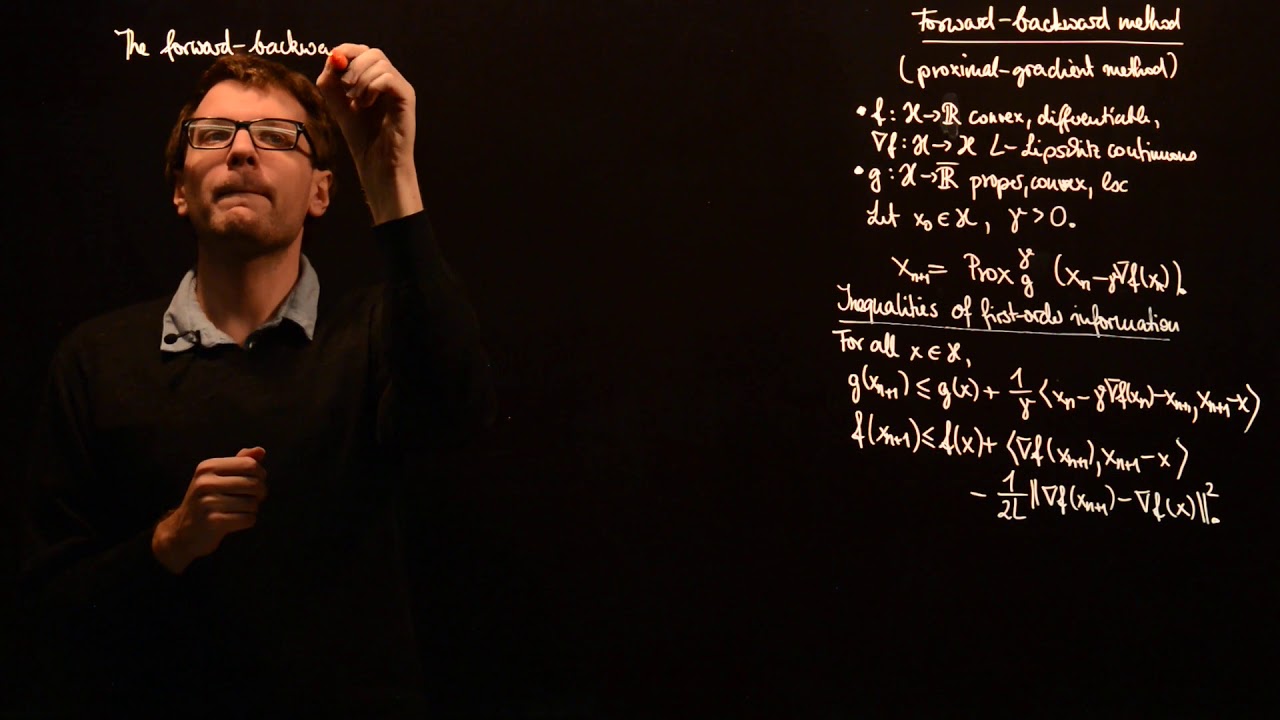 The forward-backwa
Forward-backward method
(proximal-gradient method)
• f : ℋ→ℝ convex, differentiable,
∇f : ℋ→ℋ L-Lipschitz continuous
• g : ℋ→ℝ̅ proper, convex, lsc
Let x₀ ∈ ℋ, γ > 0.
xₙ₊₁ = Prox_g^γ (xₙ - γ∇f(xₙ)).
Inequalities of first-order information
For all x ∈ ℋ,
g(xₙ₊₁) ≤ g(x) + 1/γ ⟨xₙ - γ∇f(xₙ) - xₙ₊₁, xₙ₊₁ - x⟩
f(xₙ₊₁) ≤ f(x) + ⟨∇f(xₙ₊₁), xₙ₊₁ - x⟩
- 1/2L ‖∇f(xₙ₊₁) - ∇f(x)‖².